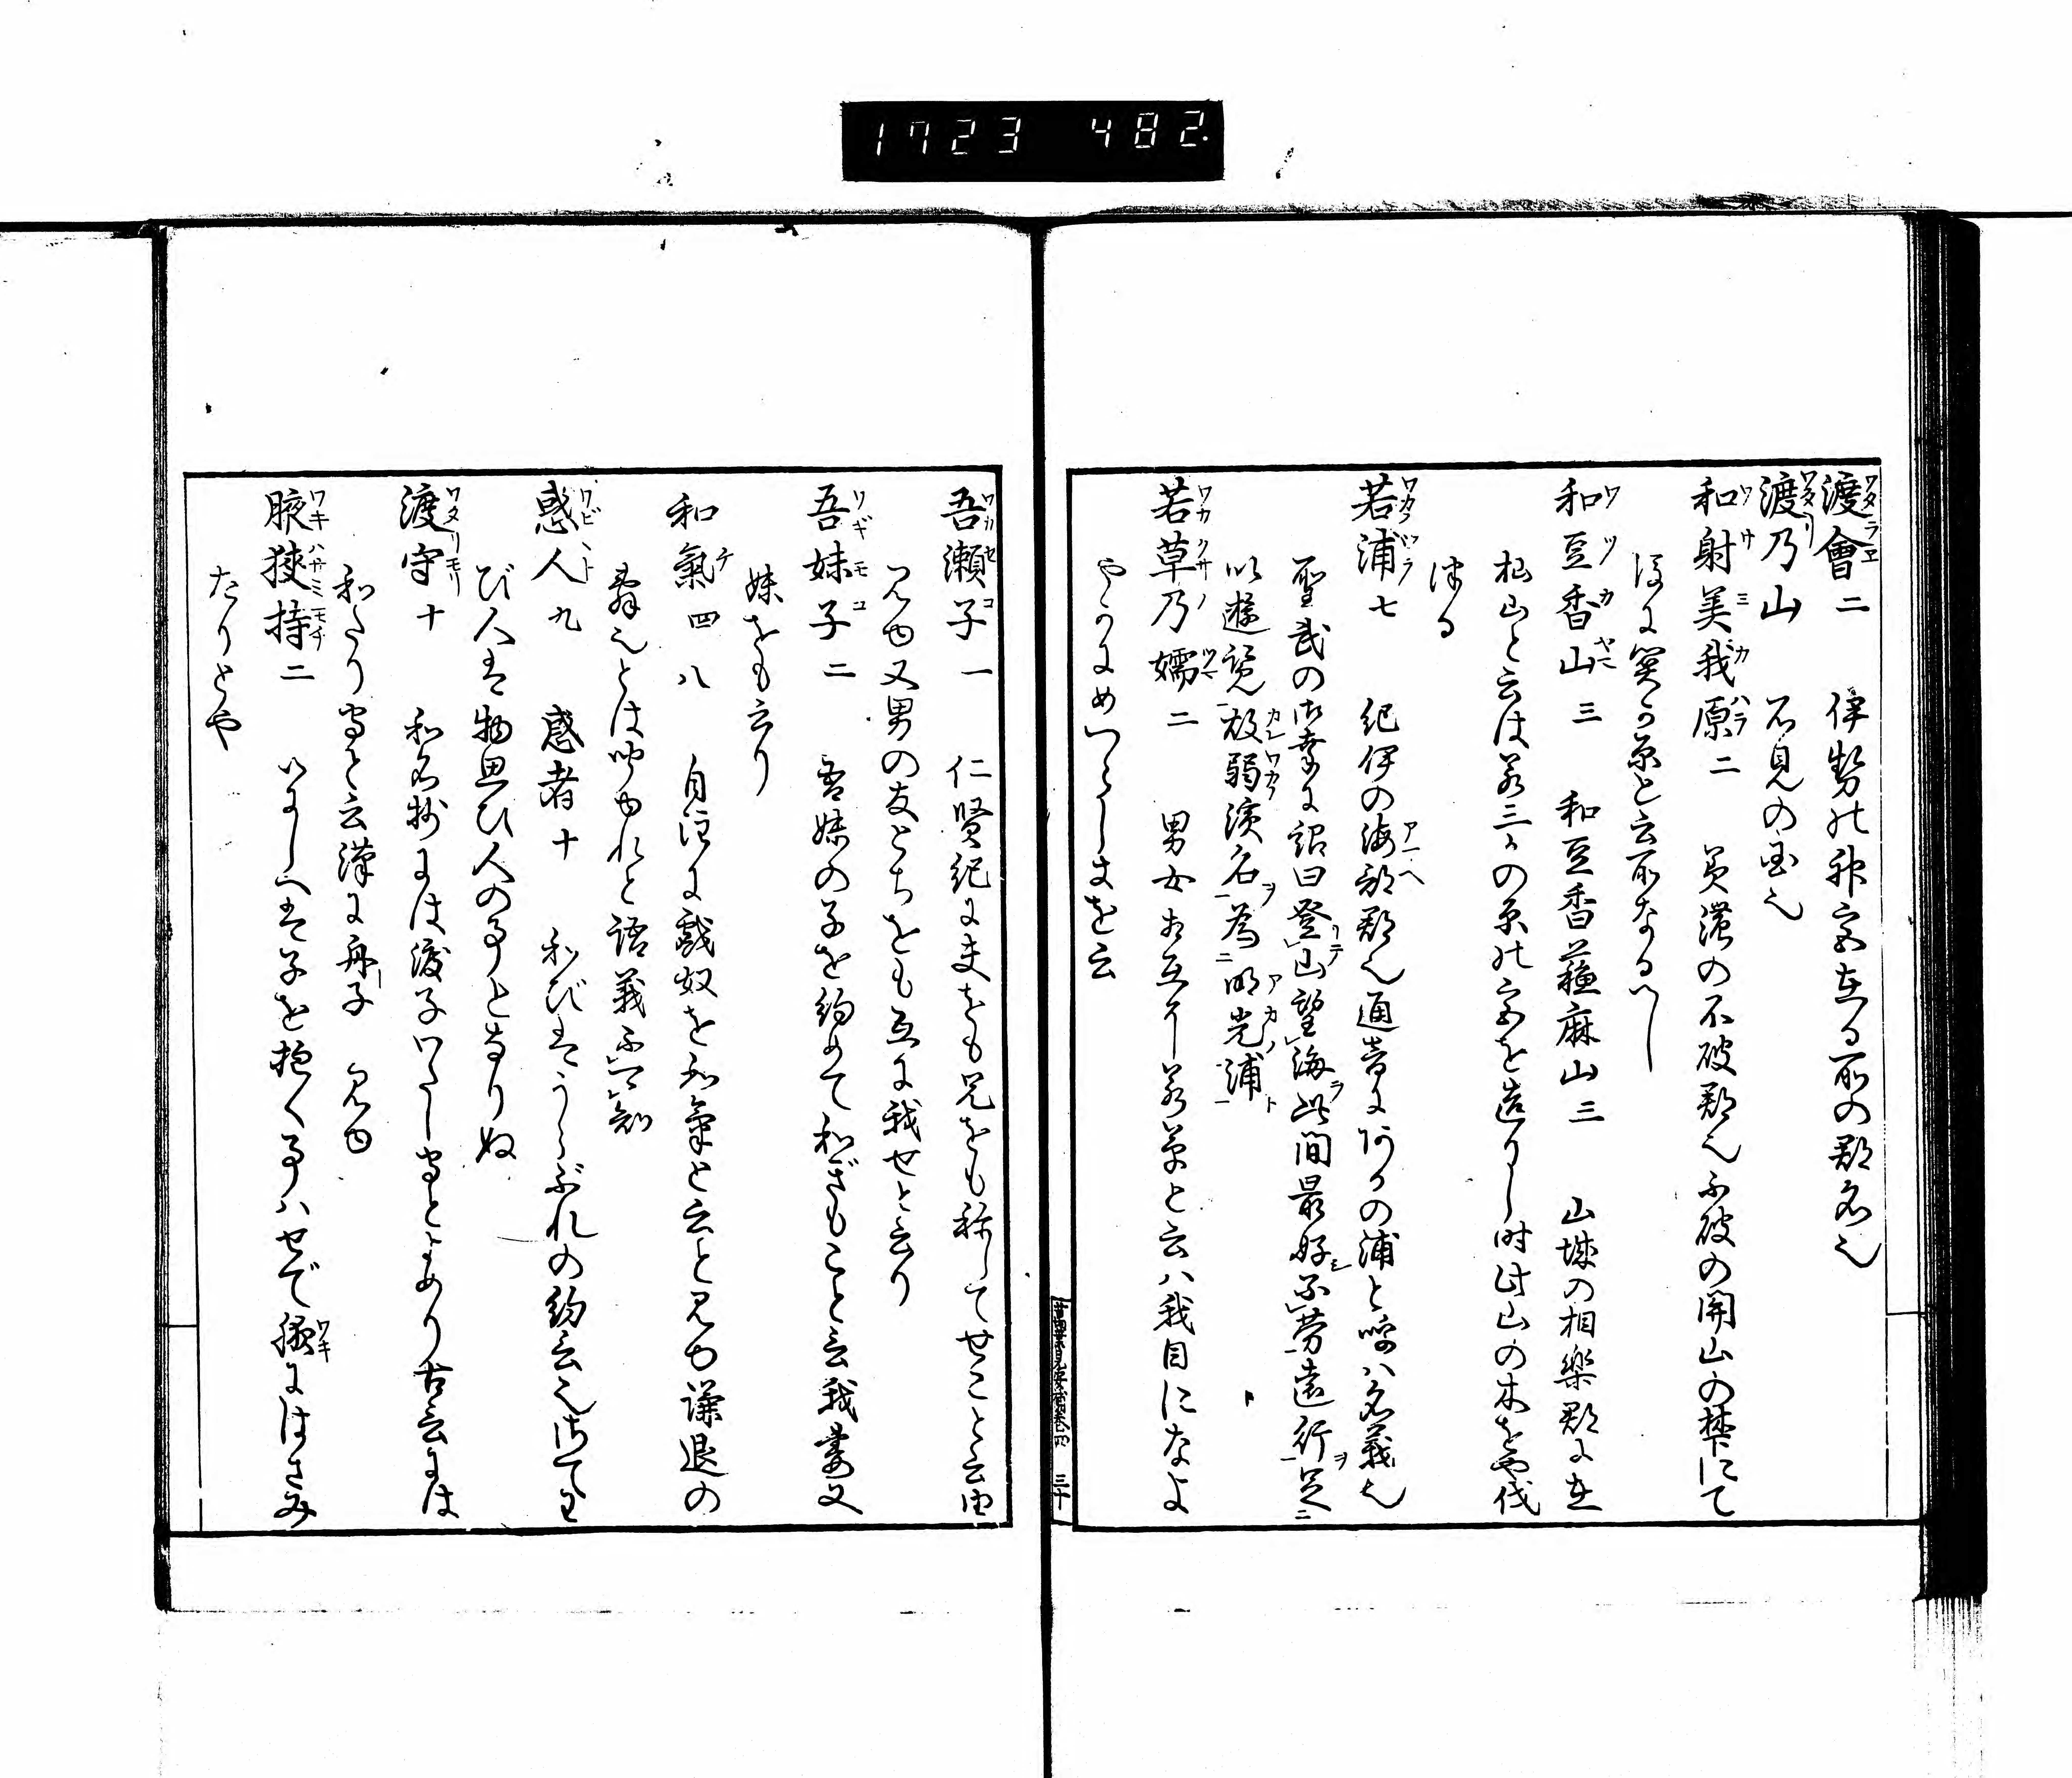 1723 482.
渡會二 伊勢の神宮ある所の郡名也
渡乃山 石見の国也
和射美我原二 美濃の不破郡也不破の関山の梺にて
ほに関か原と云所なるへし
和豆香山三 和豆香蘓麻山三 山城の相樂郡に在
杣山と云は若三かの原の宮を造りし時此山の木をや伐
ける
若浦七 紀伊の海部郡也通音にアカの浦と呼ハ名義也
聖武の御幸に詔曰登山望海此間最好不労遠行足
以遊覧故弱濱名為明光浦
若草乃嬬二 男女相互に若草と云ハ我目になよ
やかにめつらしきを云
萬葉見安補巻四 三十
吾瀬子一 仁賢紀に夫をも兄をも称してせこと云由
見ゆ又男の友とちをも互に我せと云り
吾妹子二 吾妹の子を約めて和ぎもこと云我妻又
妹をも云り
和氣四八 自注に戯奴を和氣と云と見ゆ謙退の
辞也とは聞ゆれと語義不知
惑人九 惑者十 和びはうらぶれの約言也されてわ
び人は物思ひ人の事となりぬ
渡守十 和名抄には渡子わたし守とよめり古言には
和たり守と云漢に舟子 見ゆ
腋狭持二 いにしへは子を抱く事ハせで掖にはさみ
たりとや